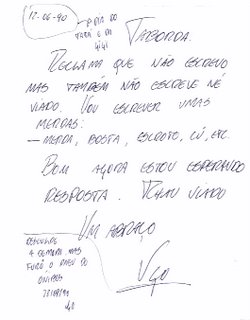 12-06-90
TABORDA.
RECLAMA QUE NÃO ESCREVO
MAS TAMBÉM NÃO ESCREVE NÉ
VIADO. VOU ESCREVER UMAS
MERDAS:
— MERDA, BOSTA, ESCROTO, CÚ, ETC.
BOM AGORA ESTOU ESPERANDO
RESPOSTA. TCHAU VIADO
UM ABRAÇO
DESCULPE
A DEMORA, MAS
FUROU O PNEU DO
ONIBUS